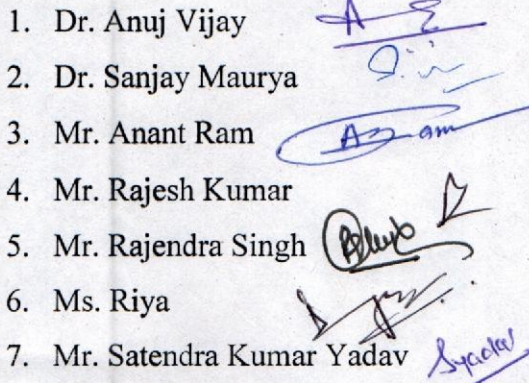 1. Dr. Anuj Vijay
2. Dr. Sanjay Maurya
3. Mr. Anant Ram
4. Mr. Rajesh Kumar
5. Mr. Rajendra Singh
6. Ms. Riya
7. Mr. Satendra Kumar Yadav Syadav